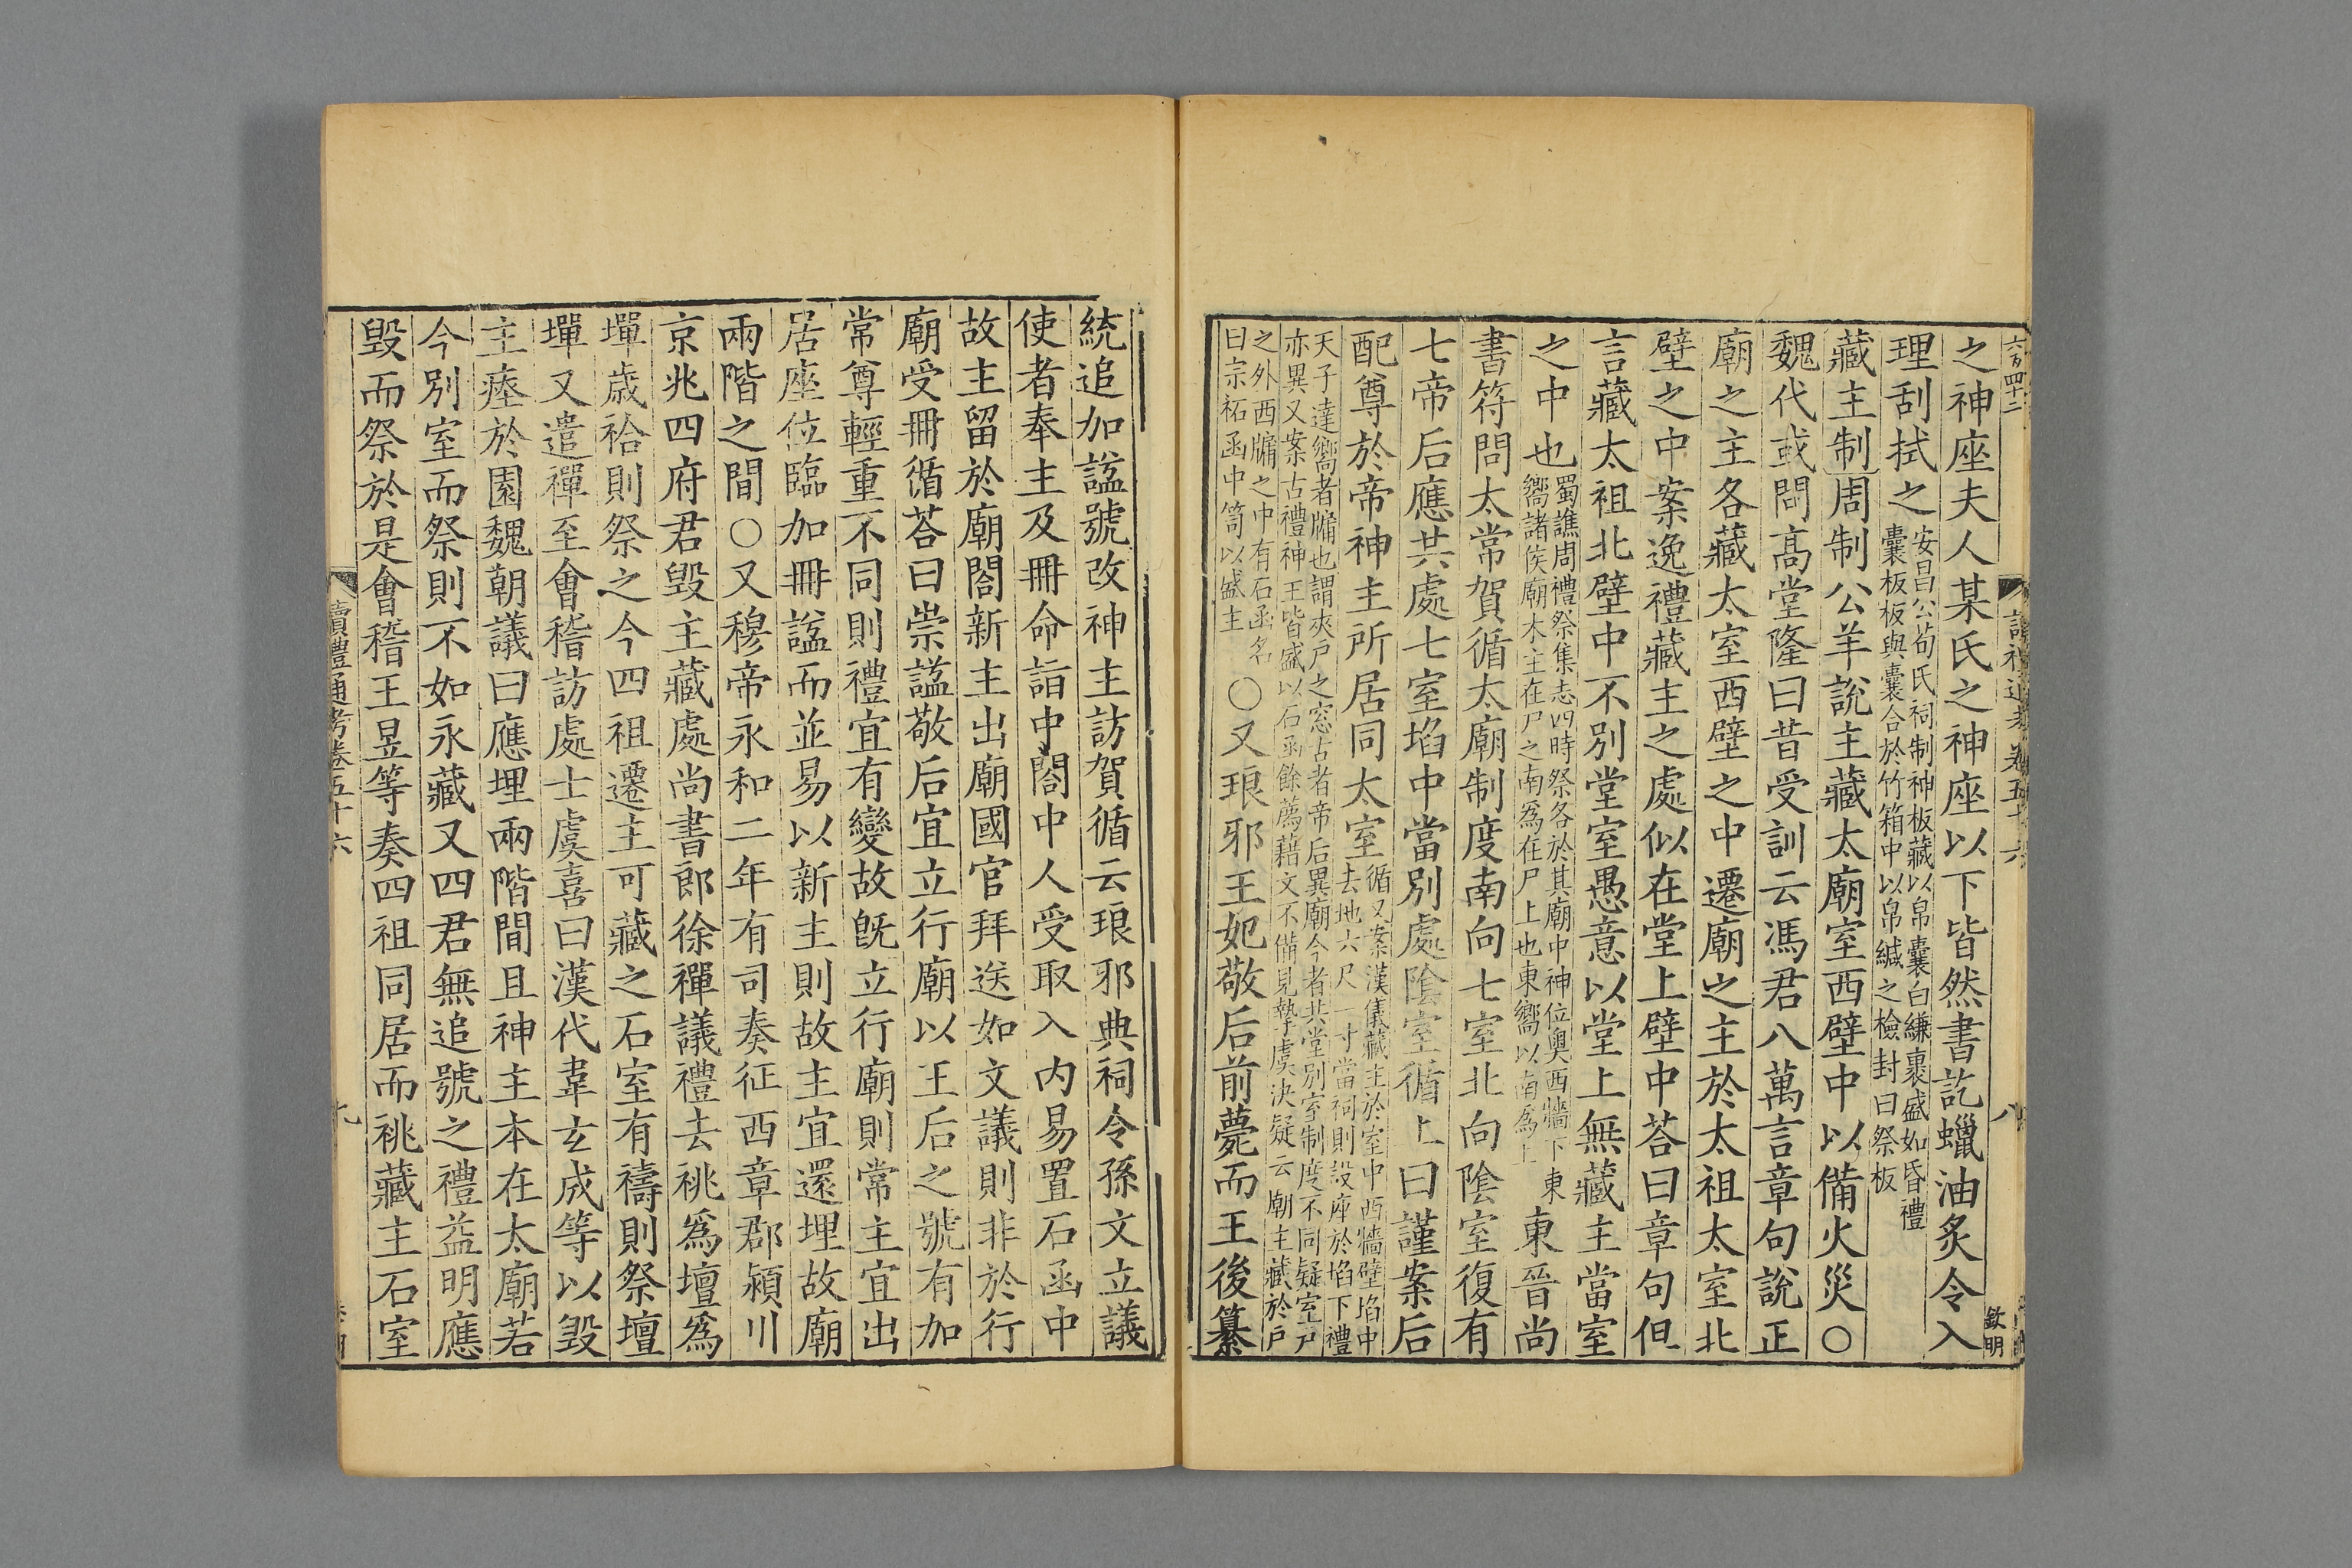 六百四十二
讀禮通考卷五十六
八
欽明
之神座夫人某氏之神座以下皆然書訖蠟油炙令入
理刮拭之安昌公荀氏祠制神板藏以帛囊白縑裹盛如昏禮
囊板板與囊合於竹箱中以帛緘之檢封曰祭板
藏主制周制公羊說主藏太廟室西壁中以備火災○
魏代或問高堂隆曰昔受訓云馮君八萬言章句說正
廟之主各藏太室西壁之中遷廟之主於太祖太室北
壁之中案逸禮藏主之處似在堂上壁中荅曰章句但
言藏太祖北壁中不別堂室愚意以堂上無藏主當室
之中也蜀譙周禮祭集志四時祭各於其廟中神位奧西牆下東
嚮諸侯廟木主在尸之南爲在尸上也東嚮以南爲上東晉尚
書符問太常賀循太廟制度南向七室北向陰室復有
七帝后應共處七室埳中當別處陰室循上曰謹案后
配尊於帝神主所居同太室循又案漢儀藏主於室中西牆壁埳中
去地六尺一寸當祠則設座於埳下禮
天子達嚮者牖也謂夾戶之窓古者帝后異廟今者共堂別室制度不同疑室戶
亦異又案古禮神王皆盛以石函餘薦藉文不備見摯虞決疑云廟主藏於戶
之外西牖之中有石函名
曰宗祏函中笥以盛主○又琅邪王妃敬后前薨而王後纂
統追加謚號改神主訪賀循云琅邪典祠令孫文立議
使者奉主及冊命詣中閤中人受取入内易置石函中
故主留於廟閤新主出廟國官拜送如文議則非於行
廟受冊循荅曰崇謚敬后宜立行廟以王后之號有加
常尊輕重不同則禮宜有變故旣立行廟則常主宜出
居座位臨加冊謚而並易以新主則故主宜還埋故廟
兩階之間○又穆帝永和二年有司奏征西章郡潁川
京兆四府君毀主藏處尚書郎徐禪議禮去祧爲壇爲
墠歲祫則祭之今四祖遷主可藏之石室有禱則祭壇
墠又遣禪至會稽訪處士虞喜曰漢代韋玄成等以毀
主瘞於園魏朝議曰應埋兩階間且神主本在太廟若
今別室而祭則不如永藏又四君無追號之禮益明應
毀而祭於是會稽王昱等奏四祖同居而祧藏主石室
讀禮通考卷五十六
九